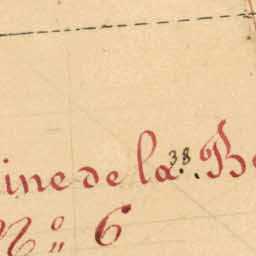 ine de la B
38
Nº 6